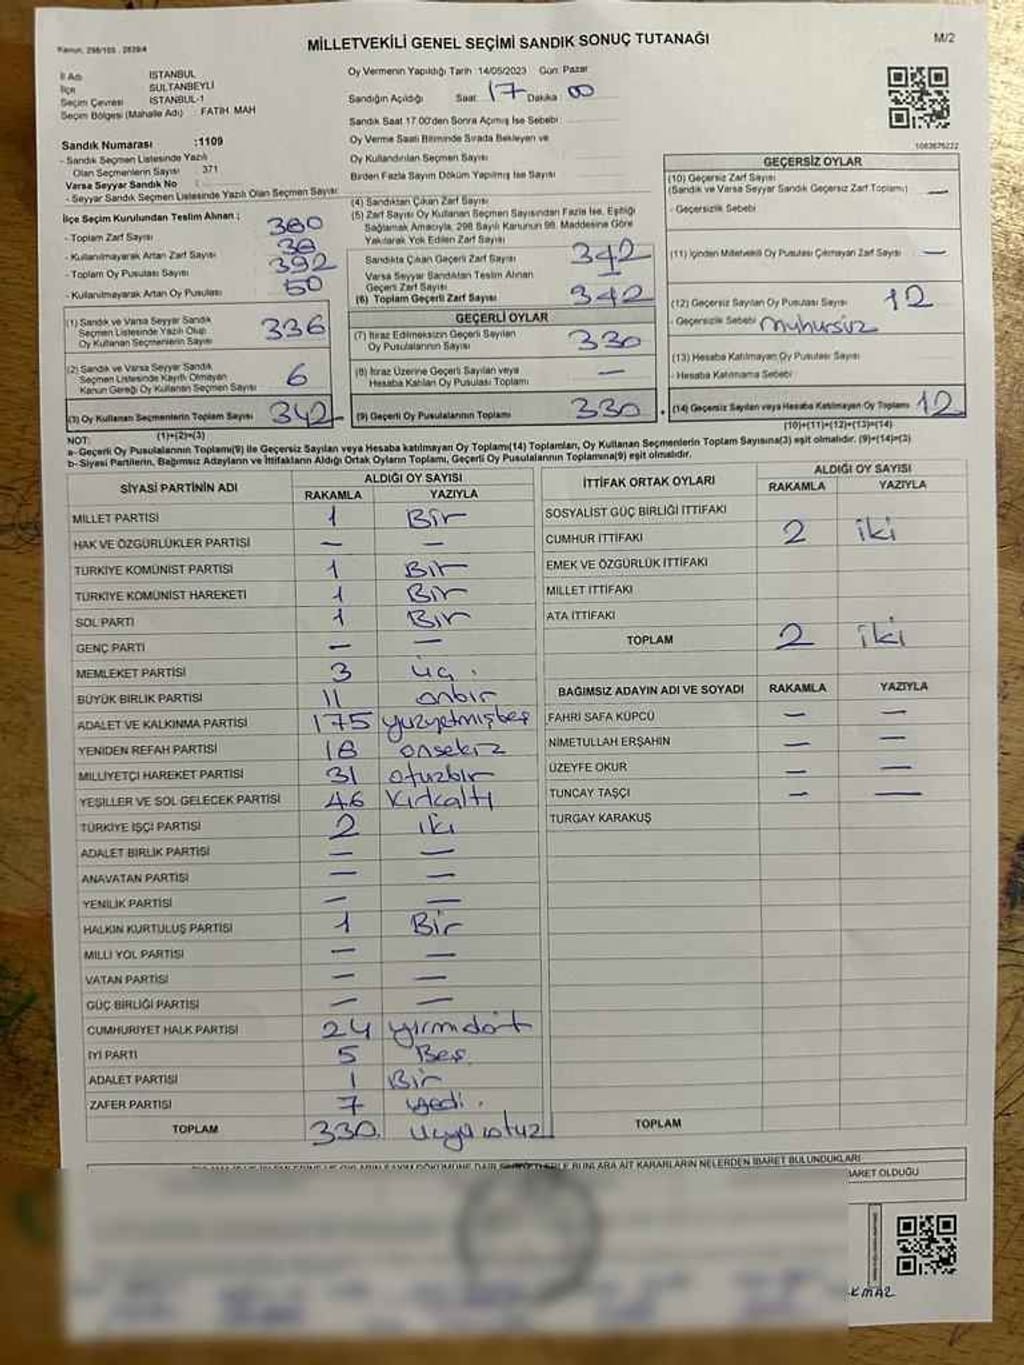 Kanun: 298/105 , 2839/4
MİLLETVEKİLİ GENEL SEÇİMİ SANDIK SONUÇ TUTANAĞI
M/2
İl Adı İSTANBUL
İlçe SULTANBEYLİ
Seçim Çevresi İSTANBUL-1
Seçim Bölgesi (Mahalle Adı) : FATİH MAH
Oy Vermenin Yapıldığı Tarih : 14/05/2023 Gün: Pazar
Sandığın Açıldığı Saat: 17 Dakika: 00
Sandık Saat 17.00'den Sonra Açımış İse Sebebi :
Oy Verme Saati Bitiminde Sırada Bekleyen ve
Oy Kullandırılan Seçmen Sayısı
Birden Fazla Sayım Döküm Yapılmış İse Sayısı
1063676222
Sandık Numarası :1109
- Sandık Seçmen Listesinde Yazılı
Olan Seçmenlerin Sayısı : 371
Varsa Seyyar Sandık No :
- Seyyar Sandık Seçmen Listesinde Yazılı Olan Seçmen Sayısı:
İlçe Seçim Kurulundan Teslim Alınan ;
- Toplam Zarf Sayısı 380
- Kullanılmayarak Artan Zarf Sayısı 38
- Toplam Oy Pusulası Sayısı 392
- Kullanılmayarak Artan Oy Pusulası 50
(1) Sandık ve Varsa Seyyar Sandık
Seçmen Listesinde Yazılı Olup
Oy Kullanan Seçmenlerin Sayısı 336
(2) Sandık ve Varsa Seyyar Sandık
Seçmen Listesinde Kayıtlı Olmayan
Kanun Gereği Oy Kullanan Seçmen Sayısı 6
(3) Oy Kullanan Seçmenlerin Toplam Sayısı 342
(1)+(2)=(3)
(4) Sandıktan Çıkan Zarf Sayısı
(5) Zarf Sayısı Oy Kullanan Seçmen Sayısından Fazla İse, Eşitliği
Sağlamak Amacıyla, 298 Sayılı Kanunun 98. Maddesine Göre
Yakılarak Yok Edilen Zarf Sayısı
Sandıkta Çıkan Geçerli Zarf Sayısı 342
Varsa Seyyar Sandıktan Teslim Alınan
Geçerli Zarf Sayısı —
(6) Toplam Geçerli Zarf Sayısı 342
GEÇERLİ OYLAR
(7) İtiraz Edilmeksizin Geçerli Sayılan
Oy Pusulalarının Sayısı 330
(8) İtiraz Üzerine Geçerli Sayılan veya
Hesaba Katılan Oy Pusulası Toplamı —
(9) Geçerli Oy Pusulalarının Toplamı 330
GEÇERSİZ OYLAR
(10) Geçersiz Zarf Sayısı
(Sandık ve Varsa Seyyar Sandık Geçersiz Zarf Toplamı) —
- Geçersizlik Sebebi
(11) İçinden Milletvekili Oy Pusulası Çıkmayan Zarf Sayısı —
(12) Geçersiz Sayılan Oy Pusulası Sayısı 12
- Geçersizlik Sebebi Mühürsüz
(13) Hesaba Katılmayan Oy Pusulası Sayısı
- Hesaba Katılmama Sebebi
(14) Geçersiz Sayılan veya Hesaba Katılmayan Oy Toplamı 12
(10)+(11)+(12)+(13)=(14)
NOT:
a- Geçerli Oy Pusulalarının Toplamı(9) ile Geçersiz Sayılan veya Hesaba katılmayan Oy Toplamı(14) Toplamları, Oy Kullanan Seçmenlerin Toplam Sayısına(3) eşit olmalıdır. (9)+(14)=(3)
b- Siyasi Partilerin, Bağımsız Adayların ve İttifakların Aldığı Ortak Oyların Toplamı, Geçerli Oy Pusulalarının Toplamına(9) eşit olmalıdır.
SİYASİ PARTİNİN ADI ALDIĞI OY SAYISI
RAKAMLA YAZIYLA
MİLLET PARTİSİ 1 Bir
HAK VE ÖZGÜRLÜKLER PARTİSİ — —
TÜRKİYE KOMÜNİST PARTİSİ 1 Bir
TÜRKİYE KOMÜNİST HAREKETİ 1 Bir
SOL PARTİ 1 Bir
GENÇ PARTİ — —
MEMLEKET PARTİSİ 3 üç.
BÜYÜK BİRLİK PARTİSİ 11 onbir
ADALET VE KALKINMA PARTİSİ 175 yüzyetmişbeş
YENİDEN REFAH PARTİSİ 18 onsekiz
MİLLİYETÇİ HAREKET PARTİSİ 31 otuzbir
YEŞİLLER VE SOL GELECEK PARTİSİ 46 Kırkaltı
TÜRKİYE İŞÇİ PARTİSİ 2 iki
ADALET BİRLİK PARTİSİ — —
ANAVATAN PARTİSİ — —
YENİLİK PARTİSİ — —
HALKIN KURTULUŞ PARTİSİ 1 Bir
MİLLİ YOL PARTİSİ — —
VATAN PARTİSİ — —
GÜÇ BİRLİĞİ PARTİSİ — —
CUMHURİYET HALK PARTİSİ 24 yirmidört
İYİ PARTİ 5 Beş
ADALET PARTİSİ 1 Bir
ZAFER PARTİSİ 7 yedi.
TOPLAM 330 üçyüzotuz
İTTİFAK ORTAK OYLARI ALDIĞI OY SAYISI
RAKAMLA YAZIYLA
SOSYALİST GÜÇ BİRLİĞİ İTTİFAKI
CUMHUR İTTİFAKI 2 iki
EMEK VE ÖZGÜRLÜK İTTİFAKI
MİLLET İTTİFAKI
ATA İTTİFAKI
TOPLAM 2 iki
BAĞIMSIZ ADAYIN ADI VE SOYADI RAKAMLA YAZIYLA
FAHRİ SAFA KÜPCÜ — —
NİMETULLAH ERŞAHİN — —
ÜZEYFE OKUR — —
TUNCAY TAŞÇI — —
TURGAY KARAKUŞ
TOPLAM
BUNLARA AİT KARARLARIN NELERDEN İBARET BULUNDUKLARI
BARET OLDUĞU
KMAZ